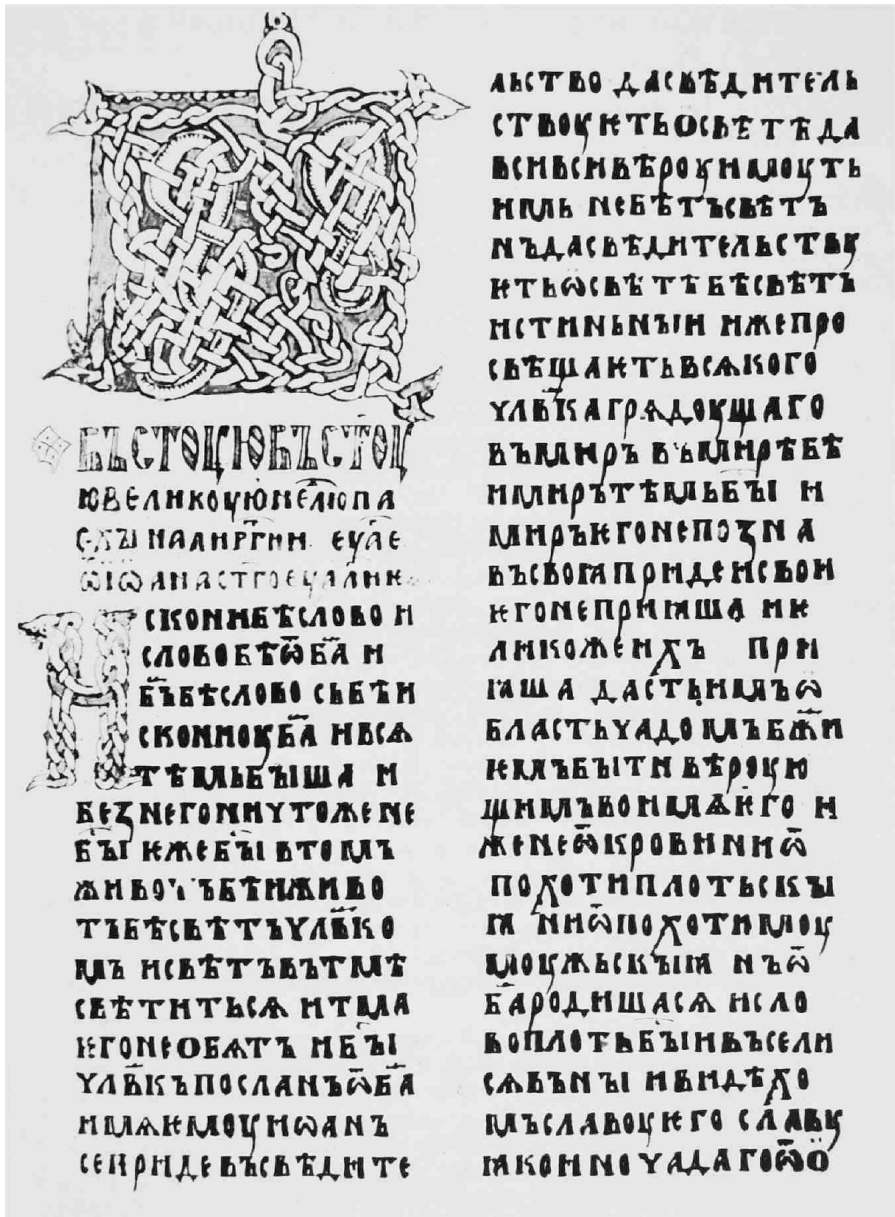 ВЪСТОЦЮВЪСТОЦ
ЮВЕЛИКОЦЮНЕЛЮПА
ѠІѠАНАСТГОЕУАЛИК
ИСКОНИБѢСЛОВО И
СЛОВОБѢѾБА И
БЪБѢСЛОВО СЬБѢИ
СКОНИОУБА ИВСѦ
ТѢМЬБЫША И
БЕꙁНЕГОНИЧТОЖЕНЕ
БЫ ѤЖЕБЫ ВТОМЪ
ЖИВОТЪБѢИЖИВО
ТЪБѢСВѢТЪЧЛВКО
МЪ ИСВѢТЪВЪТМѢ
СВѢТИТЬСѦ ИТМА
ѤГОНЕОБѦТЪ ИБЫ
ЧЛВКЪПОСЛАНЪѾБА
ИМѦѤМОУИѠАНЪ
СЕПРИДЕВЪСВѢДИТЕ
ЛЬСТВО ДАСВѢДИТЕЛЬ
СТВОУѤТЬОСВѢТѢДА
ВСИВСИВѢРОУИМОУТЬ
ИМЬ НЕБѢТЪСВѢТЪ
НЪДАСВѢДИТЕЛЬСТВꙊ
ѤТЬѠСВѢТѢБѢСВѢТЪ
ИСТИНЬНЫИ ИЖЕПРО
СВѢЩАѤТЬВСѦКОГО
ЧЛВКАГРѦДОУЩАГО
ВЪМИРЪ ВЪМИРѢБѢ
ИМИРЪТѢМЬБЫ И
МИРЪѤГОНЕПОꙁНА
ВЪСВОꙖПРИДЕИСВОИ
ѤГОНЕПРИꙖША ИѤ
ЛИКОЖЕИХЪ ПРИ
ꙖША ДАСТЬИМЪѠ
БЛАСТЬЧАДОМЪБЖИ
ѤМЪБЫТИ ВѢРОУЮ
ЩИМЪВОИМѦѤГО И
ЖЕНЕѾКРОВИНИѾ
ПОХОТИПЛОТЬСКЫ
Ꙗ НИѾПОХОТИМОУ
МОУЖЬСКЫꙖ НЪѾ
БАРОДИШАСѦ ИСЛО
ВОПЛОТЬБЫИВЪСЕЛИ
СѦВЪНЫ ИВИДѢХО
МЪСЛАВОУѤГО СЛАВꙊ
ꙖКОИНОЧАДАГОѾѠ